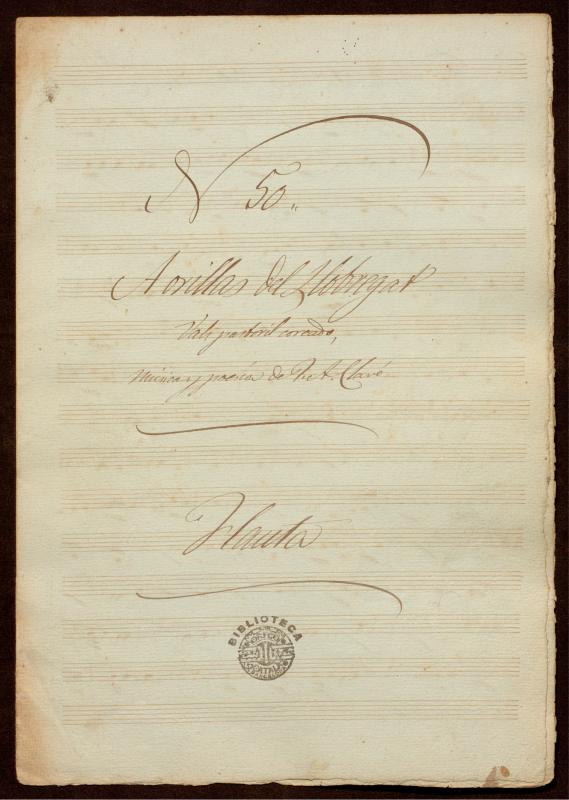 N 50.,
A orillas del Llobregat
Vals pastoril coreado,
Música y poesía de J. A. Clavé
Flauta
BIBLIOTECA
ORFEÓ
CATALÀ